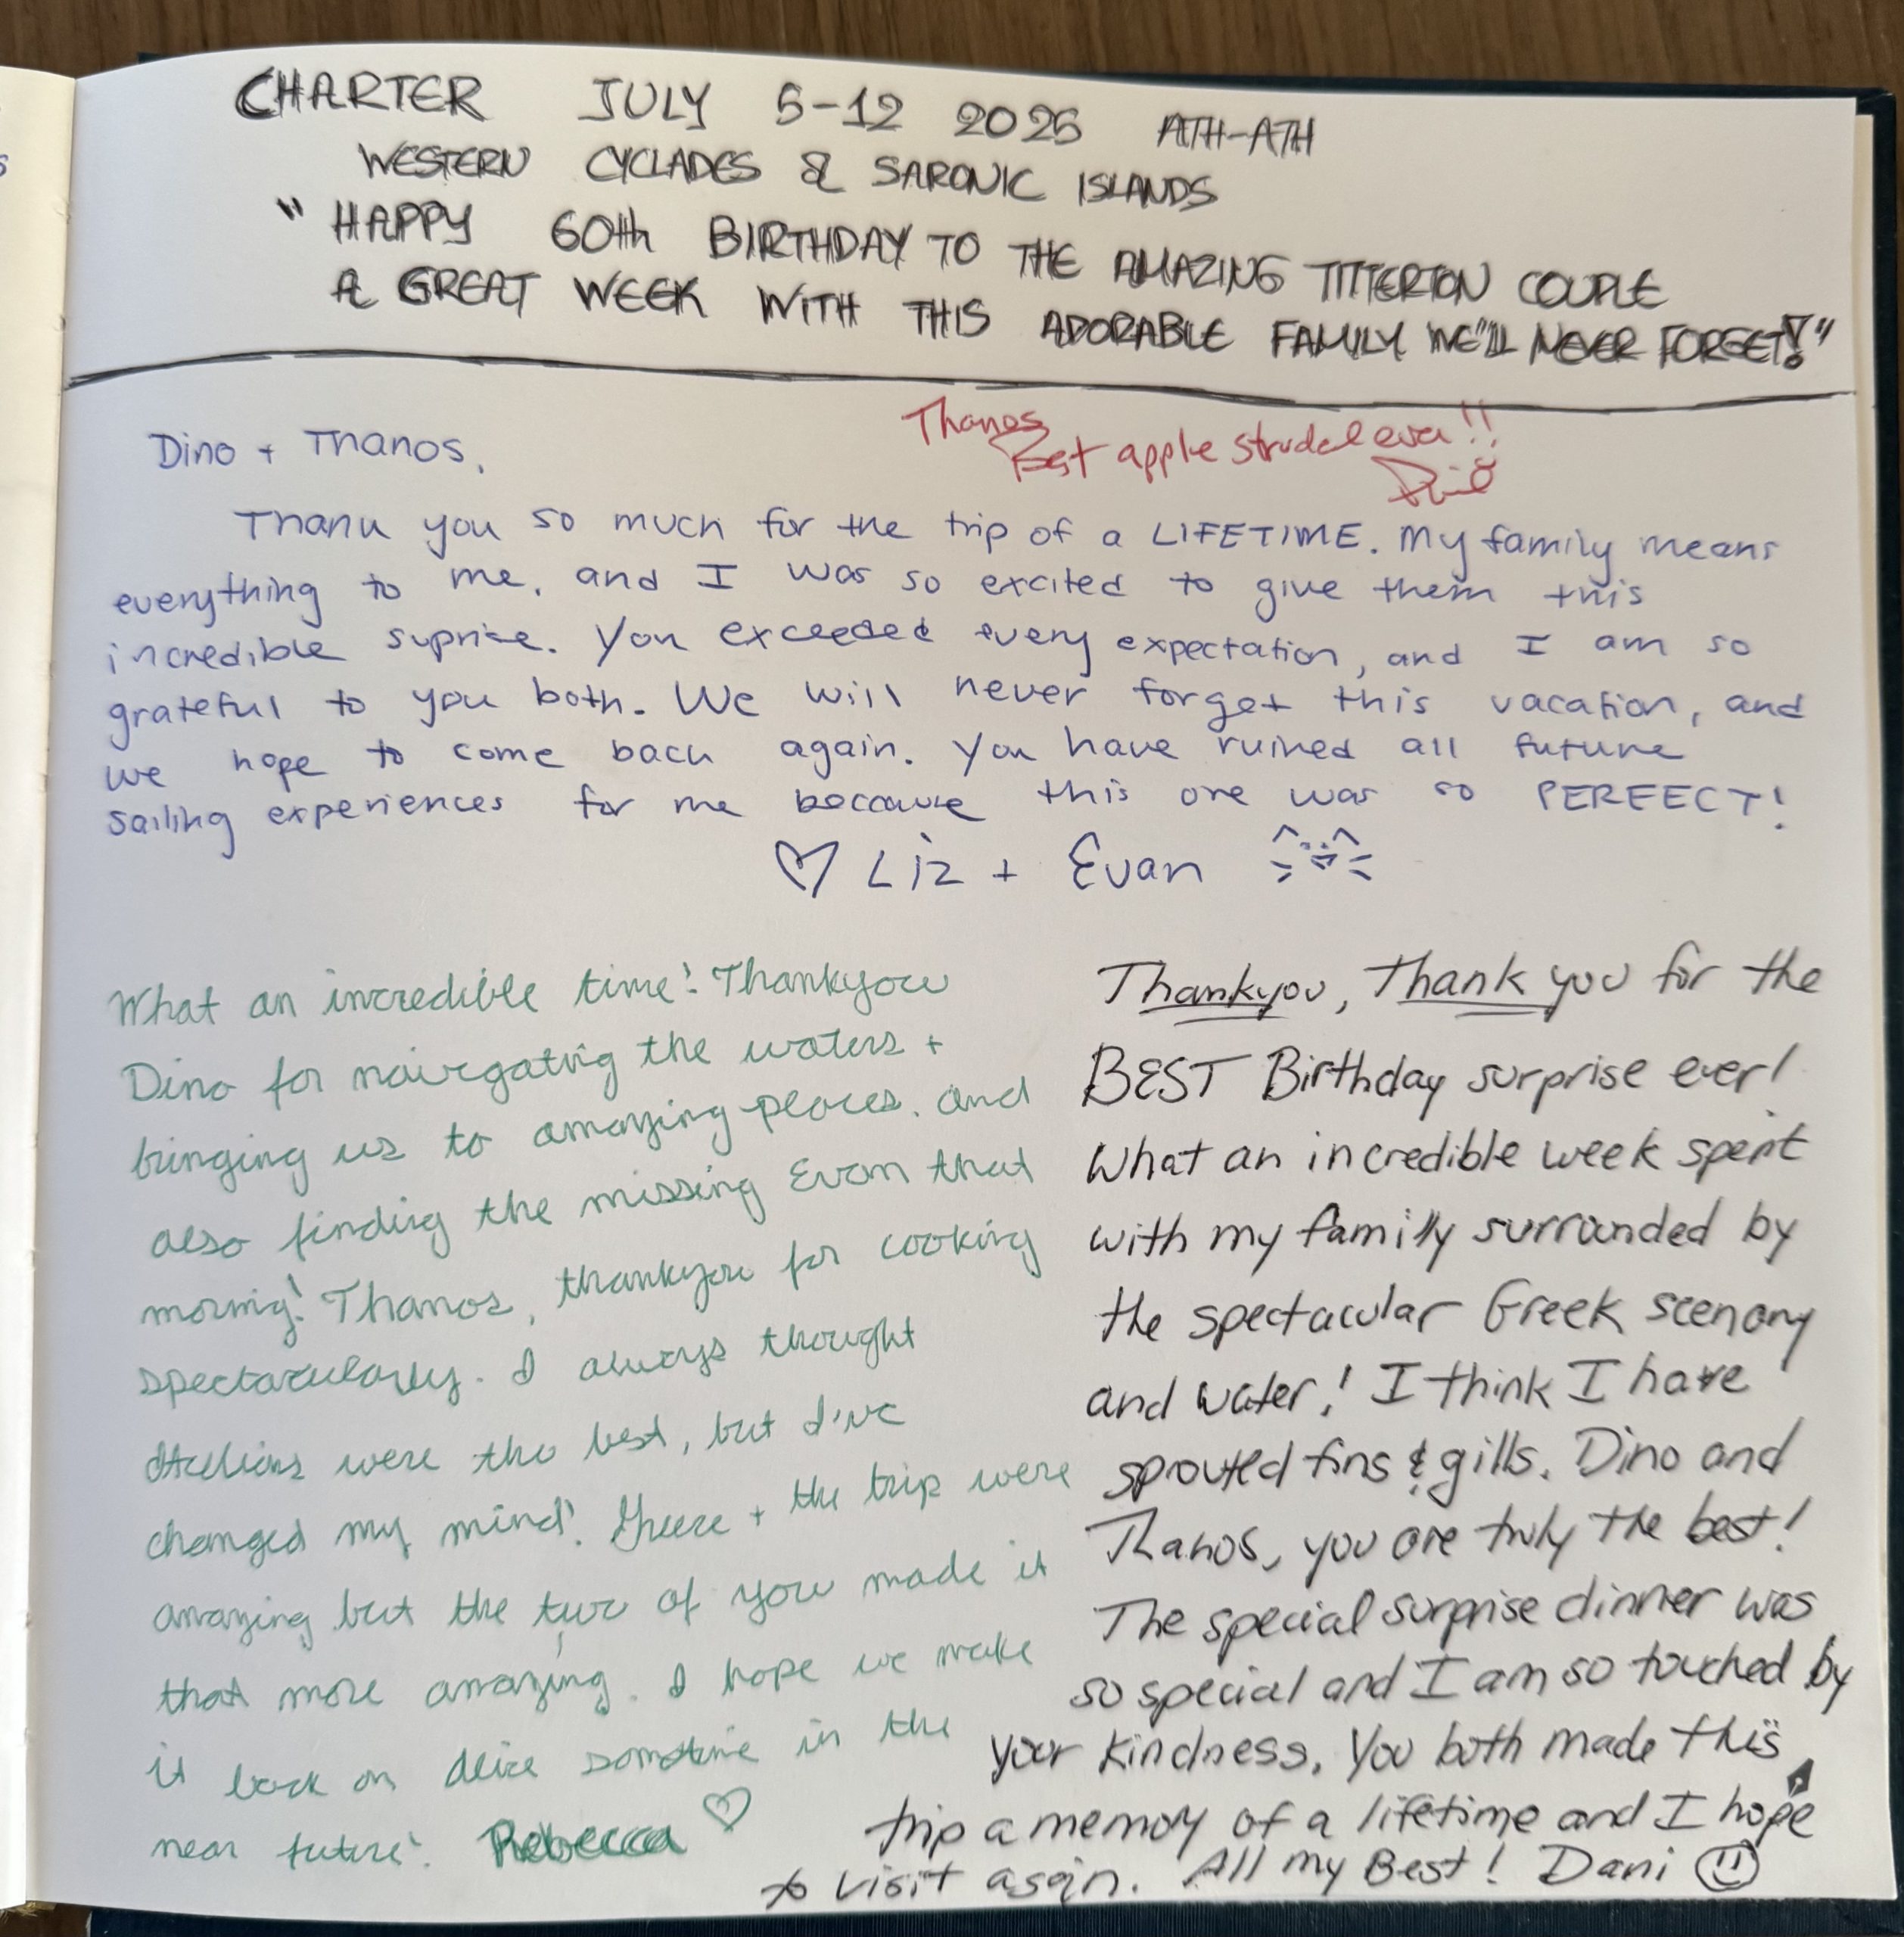 CHARTER JULY 5-12 2025 ATH-ATH
WESTERN CYCLADES & SARONIC ISLANDS
" HAPPY 60th BIRTHDAY TO THE AMAZING TITTERTON COUPLE
A GREAT WEEK WITH THIS ADORABLE FAMILY WE'LL NEVER FORGET!"
Thanos
Best apple strudel ever!!
Dino + Thanos,
Thank you so much for the trip of a LIFETIME. My family means
everything to me, and I was so excited to give them this
incredible suprise. You exceeded every expectation, and I am so
grateful to you both. We will never forget this vacation, and
we hope to come back again. You have ruined all future
sailing experiences for me because this one was so PERFECT!
♡ Liz + Evan
What an incredible time! Thankyou
Dino for navigating the waters +
bringing us to amazing places. and
also finding the missing Evan that
morning! Thanos, thankyou for cooking
spectacularly. I always thought
Italians were the best, but I've
changed my mind! Greece + the trip were
amazing but the two of you made it
that more amazing. I hope we make
it back on Alice sometime in the
near future! Rebecca ♡
Thankyou, Thank you for the
BEST Birthday surprise ever!
What an incredible week spent
with my family surrounded by
the spectacular Greek scenary
and water! I think I have
sprouted fins & gills. Dino and
Thanos, you are truly the best!
The special surprise dinner was
so special and I am so touched by
your kindness. You both made this
trip a memory of a lifetime and I hope
to visit again. All my Best! Dani ☺